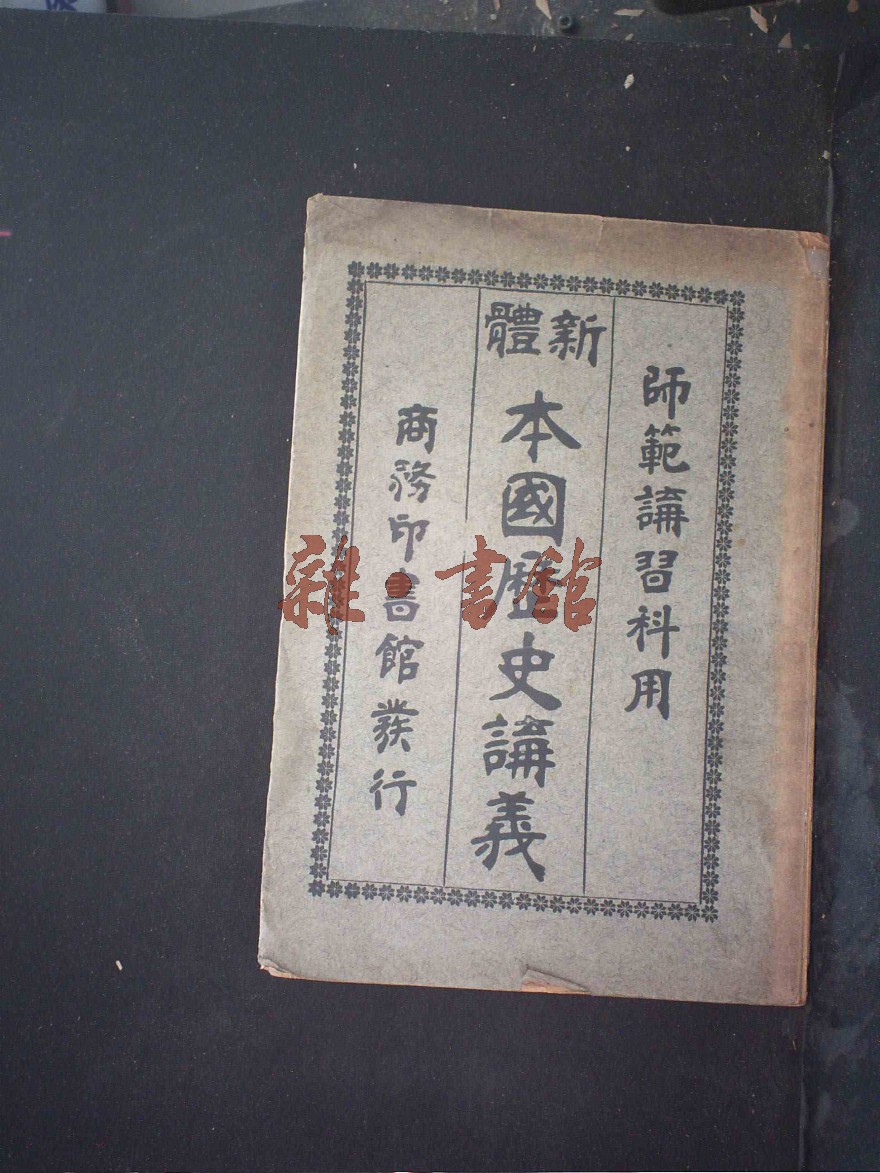 師範講習科用
新體
本國歷史講義
商務印書館發行
雜·書館